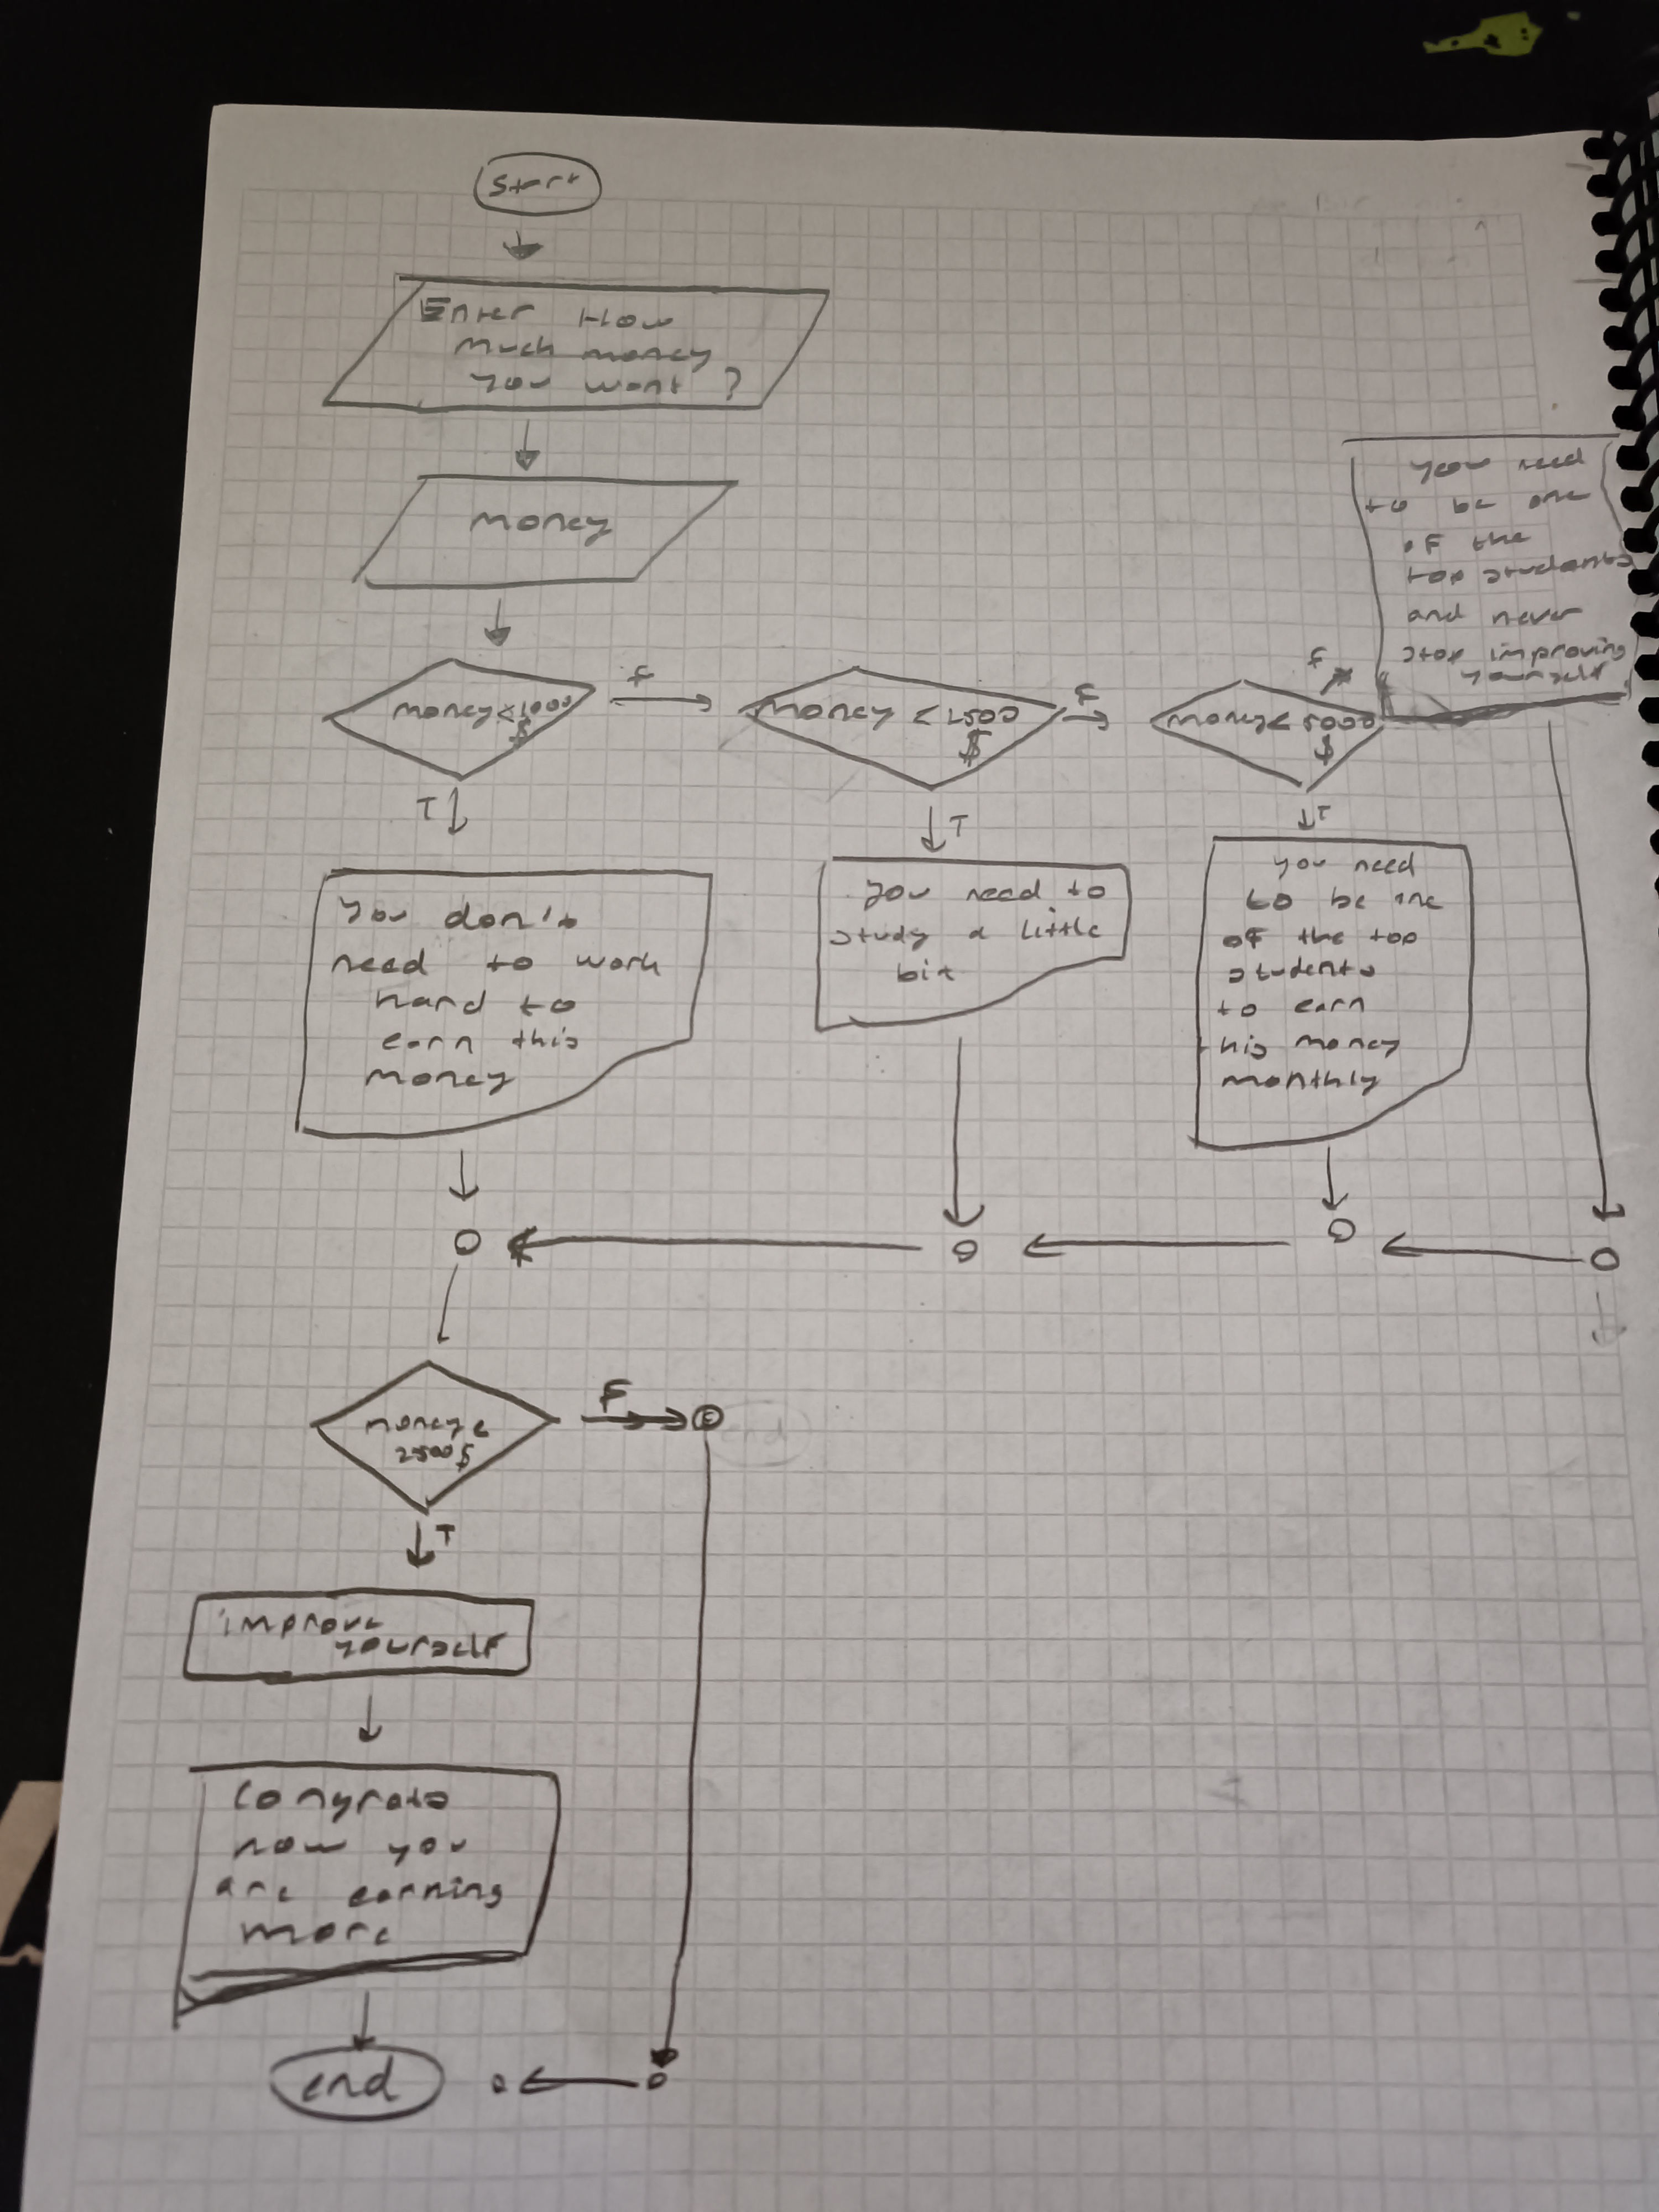 Start
Enter How
much money
you want ?
money
money < 1000
$
T
F
money < 2500
$
F
T
money < 5000
$
F
T
you need
to be one
of the
top students
and never
stop improving
yourself
you don't
need to work
hard to
earn this
money
you need to
study a little
bit
you need
to be one
of the top
students
to earn
this money
monthly
money <
2500 $
F
E
end
T
improve
yourself
Congrats
now you
are earning
more
end